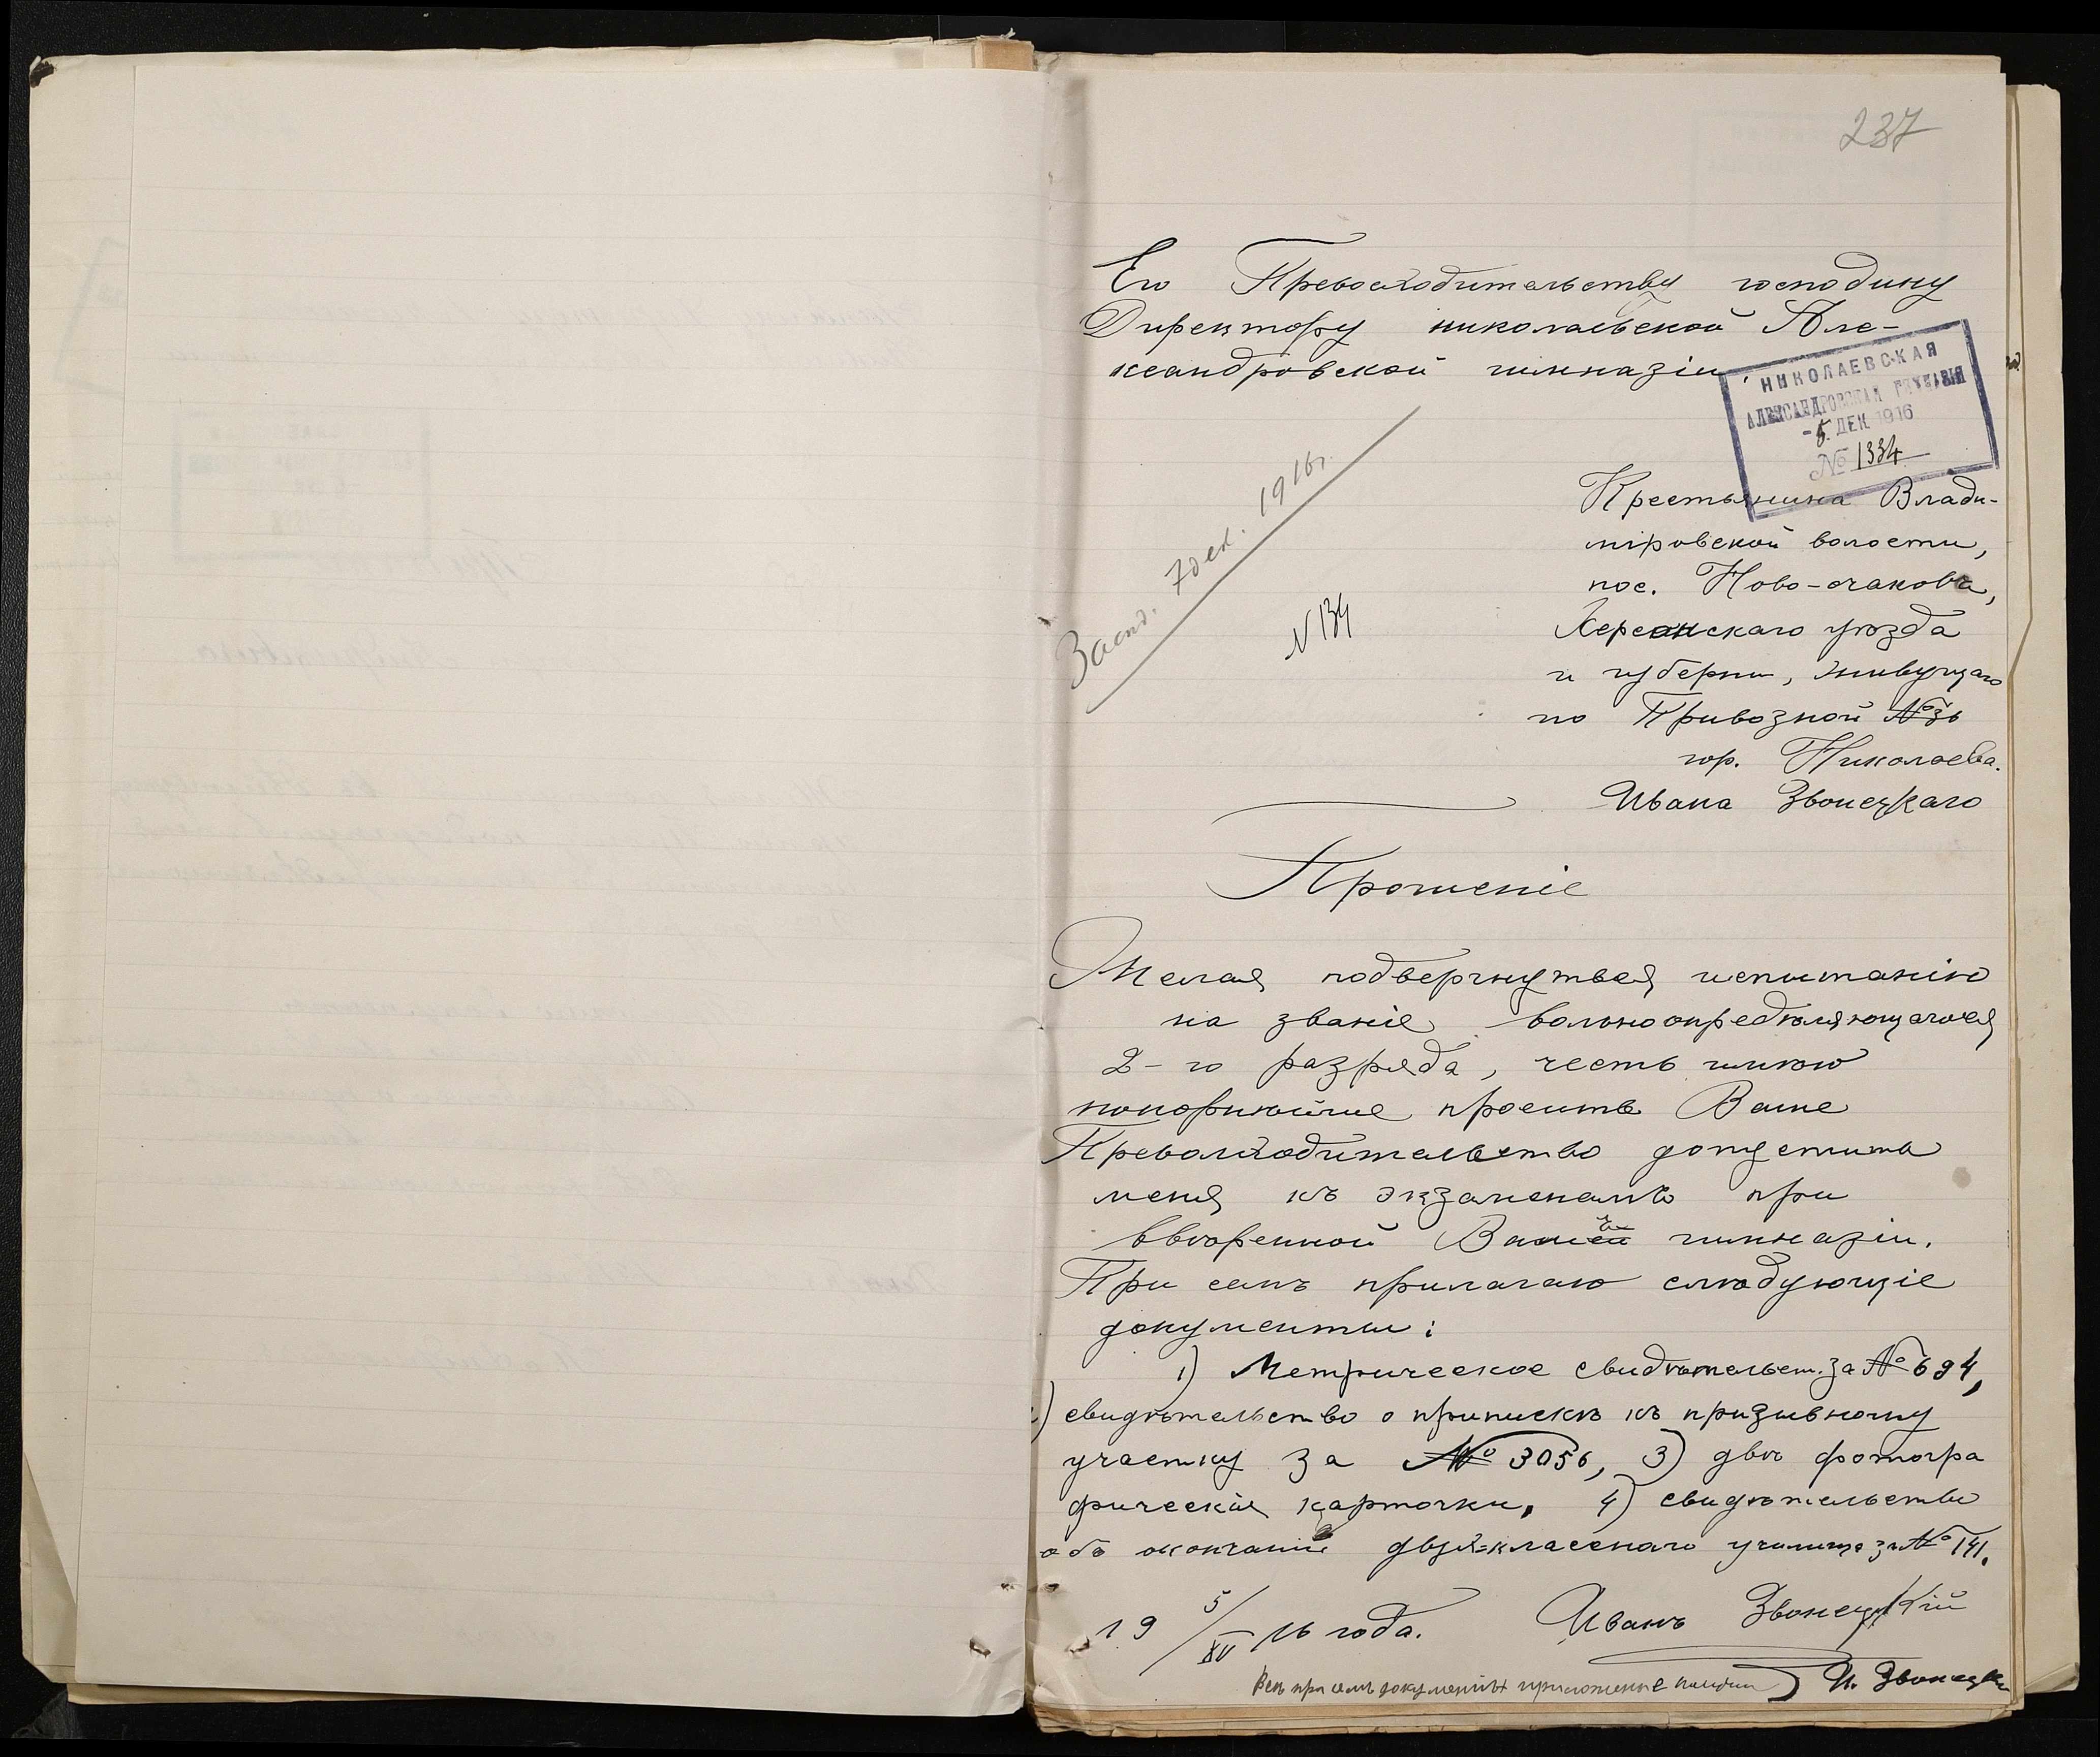 237
Его Превосходительству господину
Директору николаевской Але-
ксандровской гимназіи.
НИКОЛАЕВСКАЯ
АЛЕКСАНДРОВСКАЯ ГИМНАЗІЯ
-5. ДЕК. 1916
№ 1334
Засѣд. 7 дек. 1916 г.
N 134
Крестьянина Влади-
міровской волости,
пос. Ново-очакова,
Херсонскаго уѣзда
и губерни, живущаго
по Привозной №36
гор. Николаева.
Ивана Звонецкаго
Прошеніе
Желая подвергнуться испытанію
на званіе вольноопредѣляющагося
2-го разряда, честь имѣю
покорнѣйше просить Ваше
Превосходительство допустить
меня къ экзаменамъ при
ввѣренной Вамъ гимназіи.
При семъ прилагаю слѣдующіе
документы:
1) Метрическое свидѣтельст. за № 694,
2) свидѣтельство о припискѣ къ призывному
участку за № 3056, 3) двѣ фотогра
фическія карточки, 4) свидѣтельство
объ окончаніи двух=класснаго училища за № 141.
19 5/XII 16 года. Иванъ Звонецкій
при семъ документы приложенные И. Звонецкій